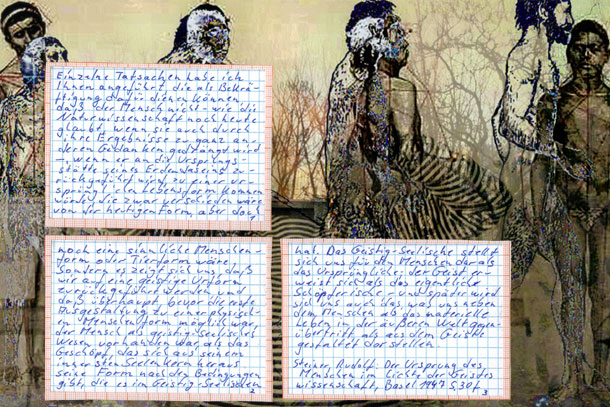 Einzelne Tatsachen habe ich
Ihnen angeführt, die als Bekräf-
tigung dafür dienen können
daß der Mensch nicht – wie die
Naturwissenschaft noch heute
glaubt, wenn sie auch durch
ihre Ergebnisse zu ganz an-
deren Gedanken gedrängt wird
–, wenn er an die Ursprungs-
stätte seines Erdendaseins zu-
rückgeführt wird, zu einer ur-
sprünglichen Lebensform kommen
würde, die zwar verschieden wäre
von der heutigen Form, aber doch
1
noch eine sinnliche Menschen-
form oder Tierform wäre,
Sondern es zeigt sich uns, daß
wir auf eine geistige Urform
zurückgeführt werden und
daß überhaupt, bevor die erste
Ausgestaltung zu einer physisch-
en Menschenform möglich war,
der Mensch als geistig-seelisches
Wesen vorhanden war als das
Geschöpf, das sich aus seinem
innersten Seelenkern heraus
seine Form nach den Bedingungen
gibt, die es im Geistig-Seelischen
2
hat. Das Geistig-Seelische stellt
sich uns für den Menschen dar als
das Ursprüngliche; der Geist er-
weist sich als das eigentliche
Schöpferische – und später wird
sich uns auch das, was uns neben
dem Menschen als das materielle
Leben in der äußeren Welt gegen-
übertritt als aus dem Geiste
gestaltet darstellen.
Steiner, Rudolf. Der Ursprung des
Menschen im Lichte der Geistes
wissenschaft, Basel 1947 S 30f
3